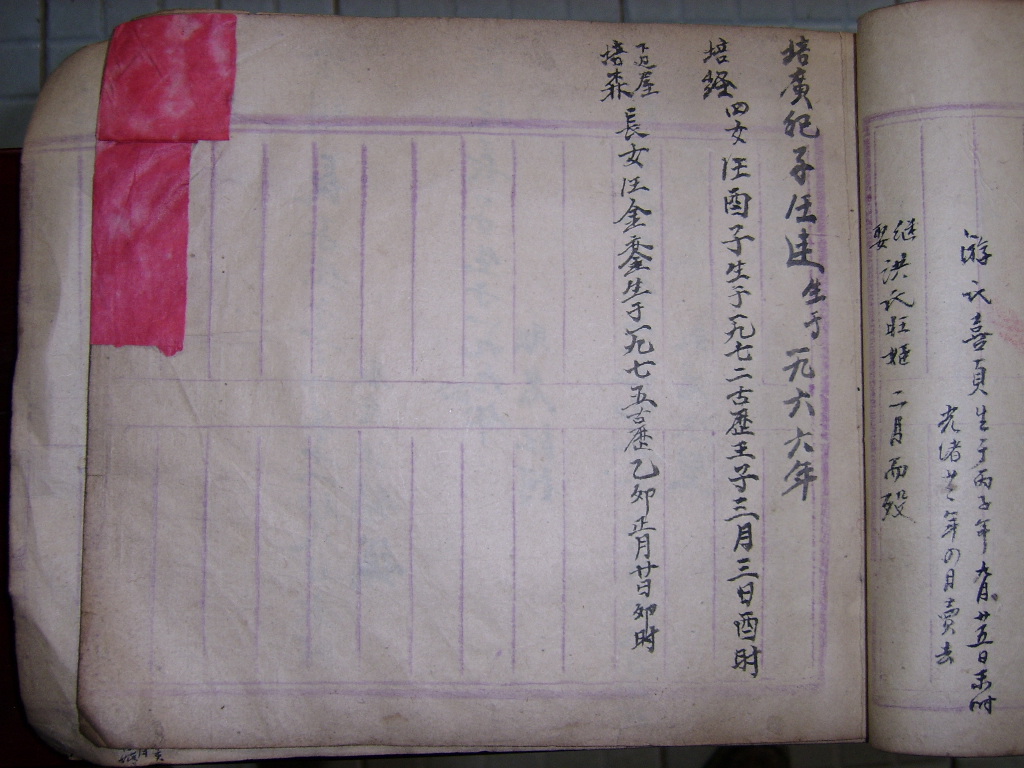 游氏喜頁生于丙子年九月廿五日未时
光绪廿二年四月賣去
继娶洪氏旺姬 二月而殁
培廣紀子汪建生于一九六六年
培經四女汪酉子生于一九七二古歷壬子三月三日酉时
下厝培森長女汪金銮生于一九七五古歷乙卯正月廿日卯时